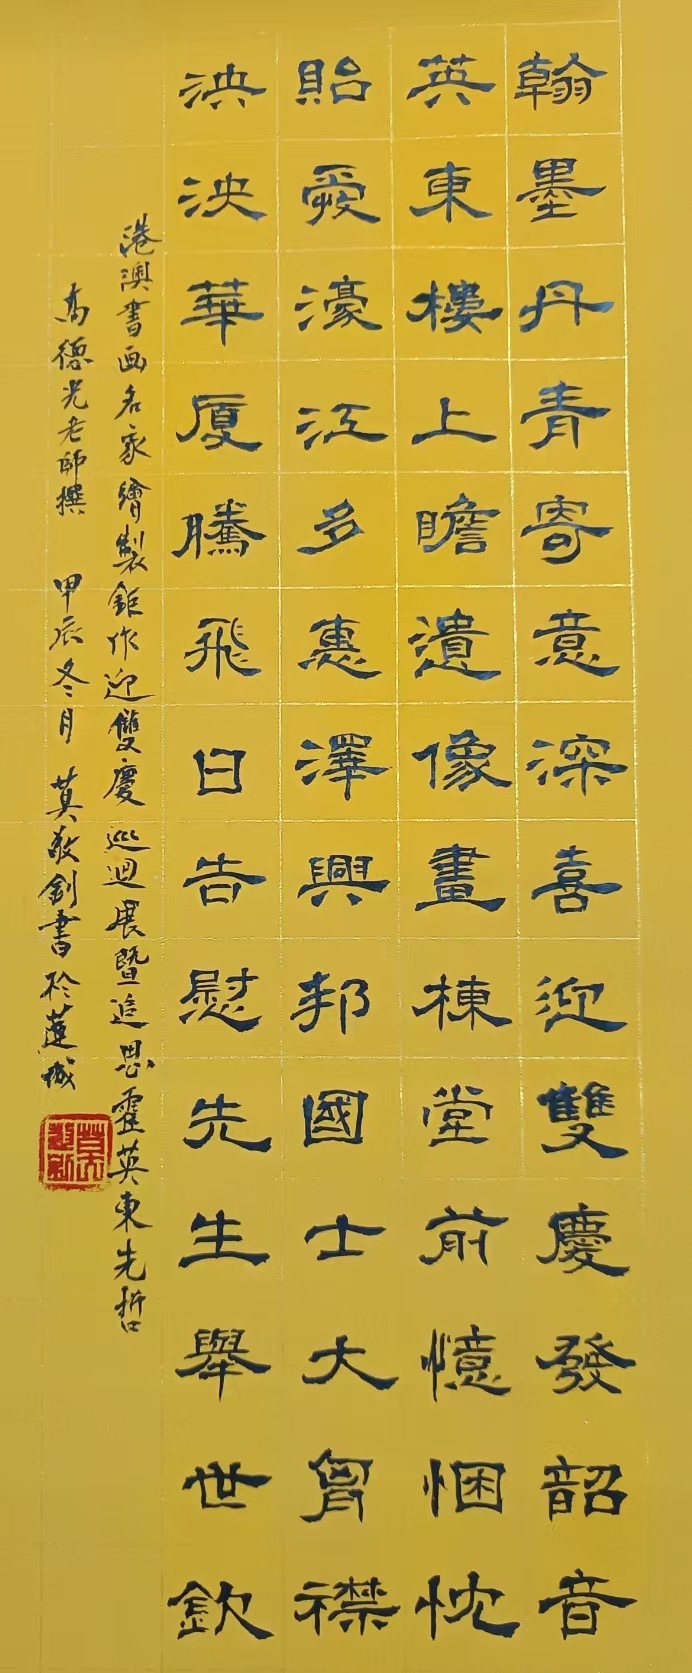 翰墨丹青寄意深喜迎雙慶發韶音
英東樓上瞻遺像畫棟堂前憶悃忱
貽愛濠江多惠澤興邦國士大胷襟
泱泱華厦騰飛日告慰先生舉世欽
港澳書画名家繪製鉅作迎雙慶巡迴展暨追思霍英東先哲
高德光老師撰 甲辰冬月 莫敬釗書於蓮城